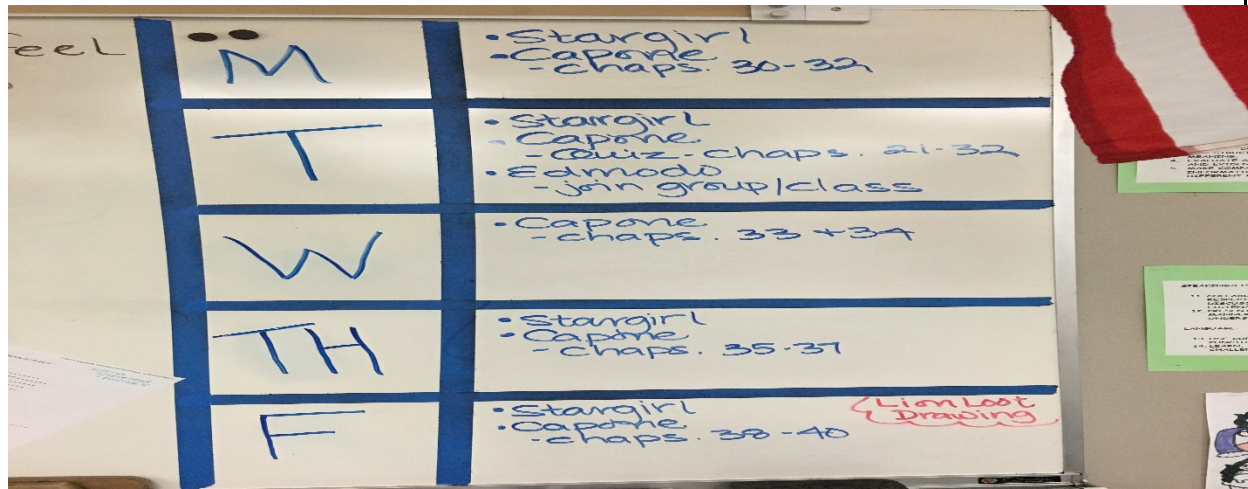 feel
M
• Stargirl
• Capone
- chaps. 30-32
T
• Stargirl
• Capone
- Quiz - chaps. 21-32
• Edmodo
- join group/class
W
• Capone
- chaps. 33 + 34
TH
• Stargirl
• Capone
- chaps. 35-37
F
• Stargirl
• Capone
- chaps. 38-40
Lion Loot
Drawing
MEANING
LANGUAGE